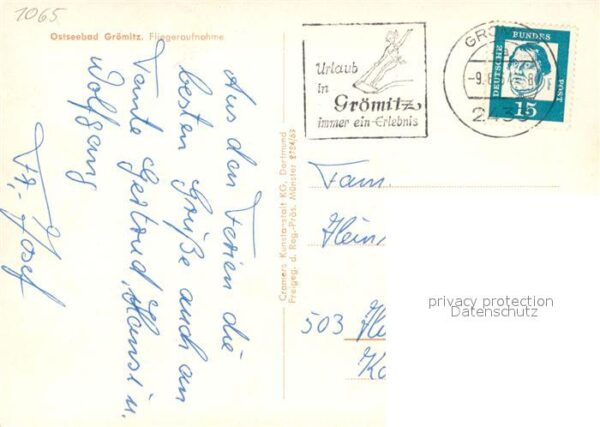 1065
Ostseebad Grömitz. Fliegeraufnahme
Aus den Ferien die
besten Grüße auch an
Tante Gertrud, Hansi u.
Wolfgang
Fr. Josef
Cramers Kunstanstalt KG, Dortmund
Freigeg. d. Reg.-Präs. Münster 8194/63
Urlaub
in
Grömitz
immer ein Erlebnis
GRÖM
-9.
DEUTSCHE
BUNDES
POST
15
Fam.
Hein
503 He
privacy protection
Datenschutz